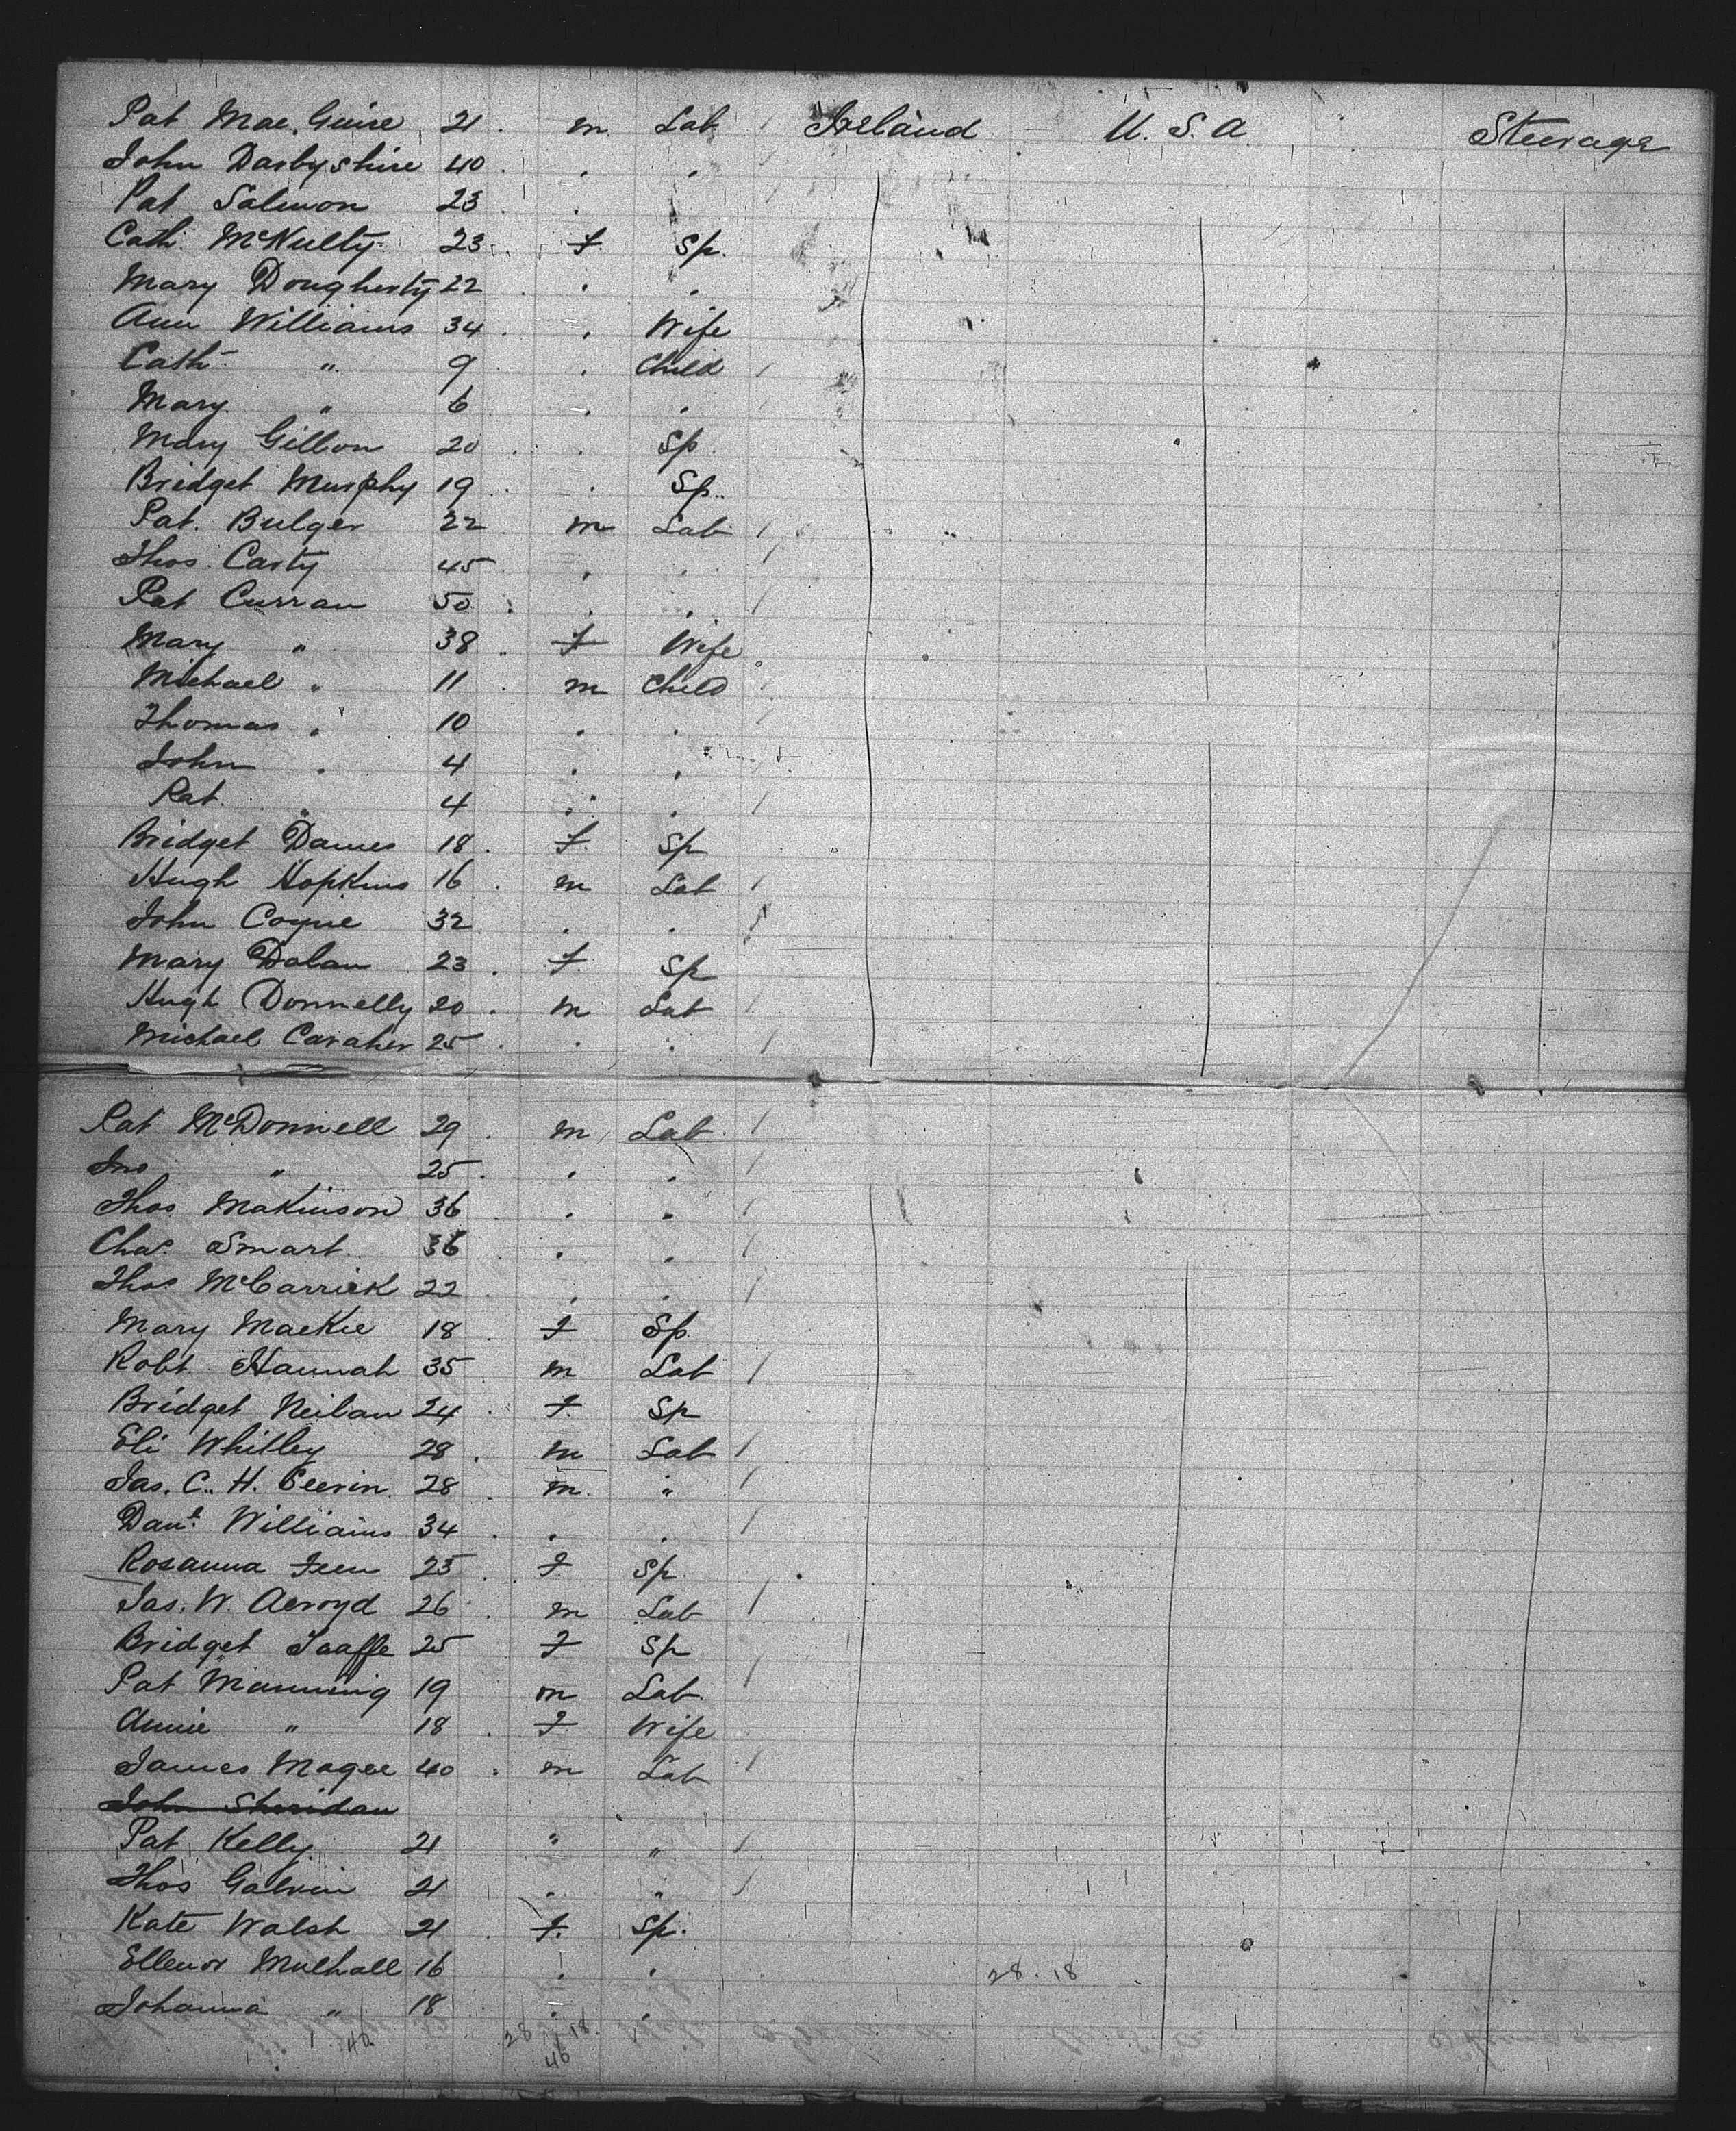 Pat Mac.Guire 21 . m Lab / Ireland U. S. A Steerage
John Darbyshire 40 . . .
Pat Salmon 23 . .
Cath. McNulty 23 . f Sp.
Mary Dougherty 22 . . .
Ann Williams 34 . . Wife
Cath " 9 . Child /
Mary " 6 . .
Mary Gillon 20 . . Sp.
Bridget Murphy 19 . . Sp.
Pat. Bulger 22 m Lab /
Thos. Carty 45 . . /
Pat Curran 50 . . . /
Mary " 38 . f Wife
Michael " 11 . m Child /
Thomas " 10 . . /
John " 4 . .
Pat. " 4 . . /
Bridget Dames 18 . f. Sp
Hugh Hopkins 16 . m Lab /
John Coyne 32 . . /
Mary Dolan 23 . f. Sp
Hugh Donnelly 20 . m Lab /
Michael Caraher 25 . . . /
Pat McDonnell 29 . m Lab. /
Jno " 25 . . . /
Thos Makinson 36 . . /
Chas. Smart 36 . . /
Thos McCarrick 22 . . /
Mary Mackie 18 . f Sp
Robt. Hannah 35 . m Lab /
Bridget Neilan 24 . f. Sp
Eli Whitley 28 . m Lab /
Jas. C. H. 28 . m. " /
Danl. Williams 34 . . . /
Rosanna Feen 25 . f Sp.
Jas. W. Acroyd 26 . m Lab /
Bridget Taaffe 25 f Sp
Pat Manning 19 m Lab. /
Annie " 18 . f Wife
James Magee 40 . m Lab /
John Sheridan
Pat Kelly. 21 " " /
Thos Galvin 21 . " /
Kate Walsh 21 . f. Sp.
Ellenor Mulhall 16 . . 28 . 18
Johanna " 18 . .
28 18
46